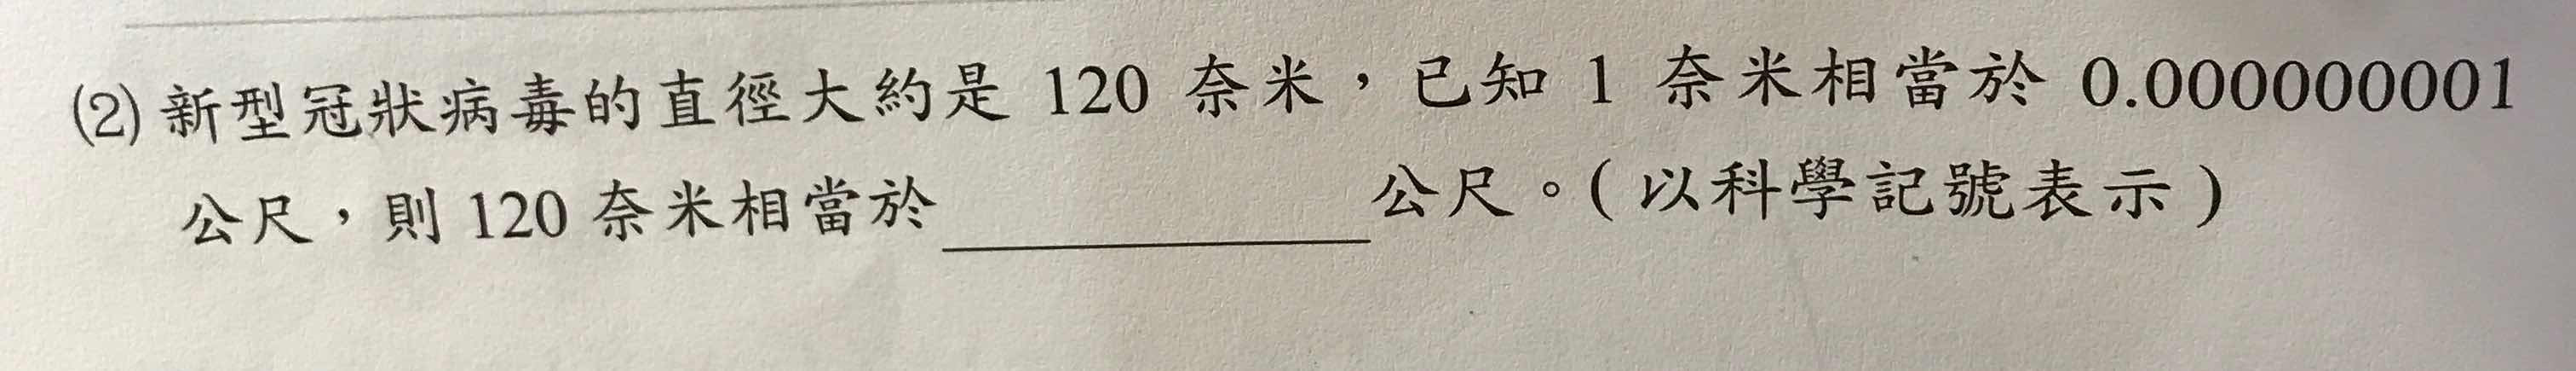 (2) 新型冠狀病毒的直徑大約是 120 奈米，已知 1 奈米相當於 0.000000001
公尺，則 120 奈米相當於__________公尺。( 以科學記號表示 )